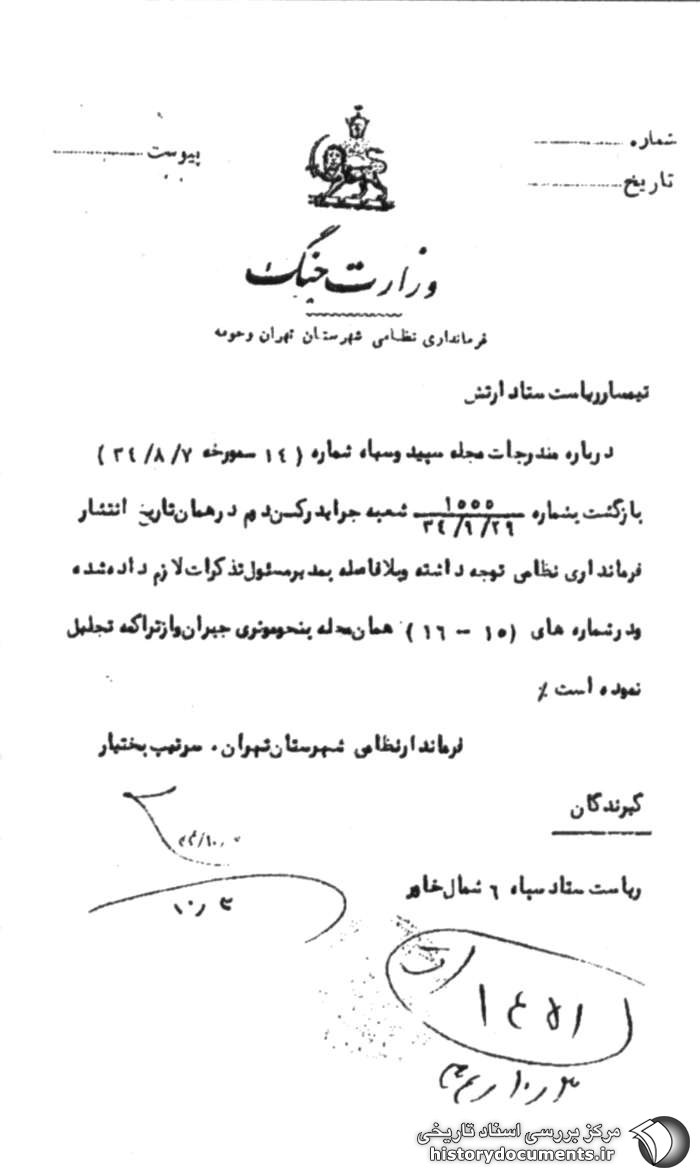 شماره
تاریخ
پیوست
وزارت جنگ
فرمانداری نظامی شهرستان تهران و حومه
تیمسار ریاست ستاد ارتش
درباره مندرجات مجله سپید و سیاه شماره (۱٤ مورخه ۳٤/۸/۷)
بازگشت بشماره ۱۵۵۵ شعبه جراید رکن دوم در همان تاریخ انتشار
۳٤/۹/۲۹
فرمانداری نظامی توجه داشته وبلافاصله بمدیر مسئول تذکرات لازم داده شده
ودر شماره های (۱۵ - ۱٦) همان مجله بنحو موثری جبران واز تراکمه تجلیل
نموده است ٪
فرماندار نظامی شهرستان تهران. سرتیپ بختیار
گیرندگان
ریاست ستاد سپاه ٦ شمال خاور
مرکز بررسی اسناد تاریخی
historydocuments.ir